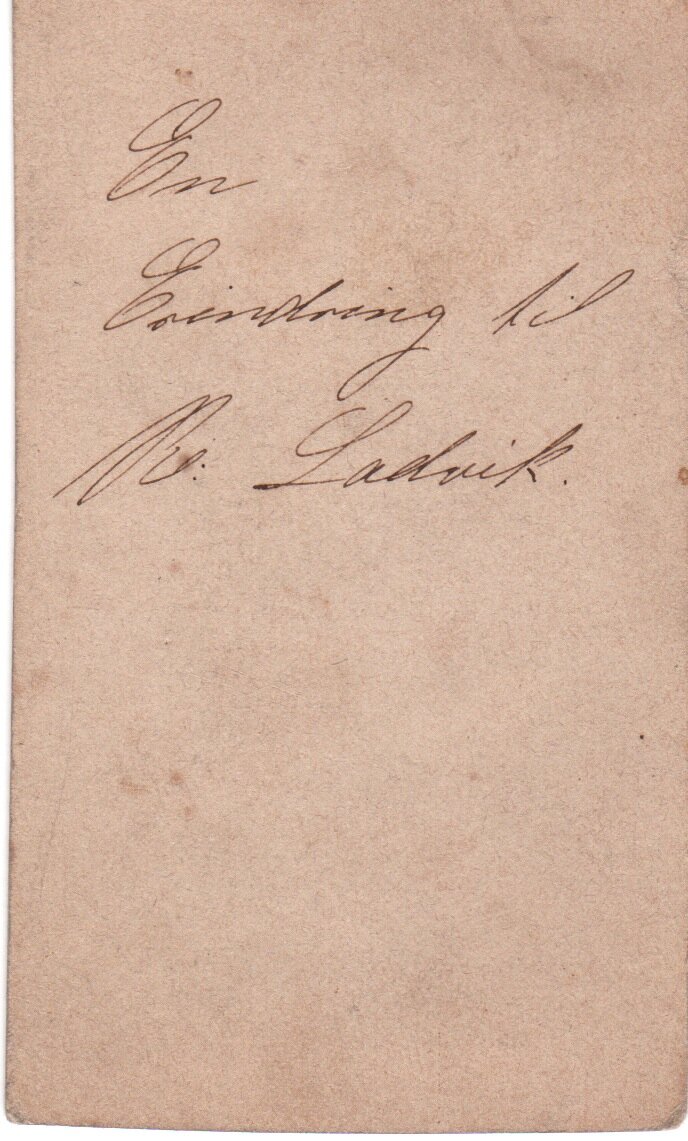 En
Erindring til
N: Ladvik.